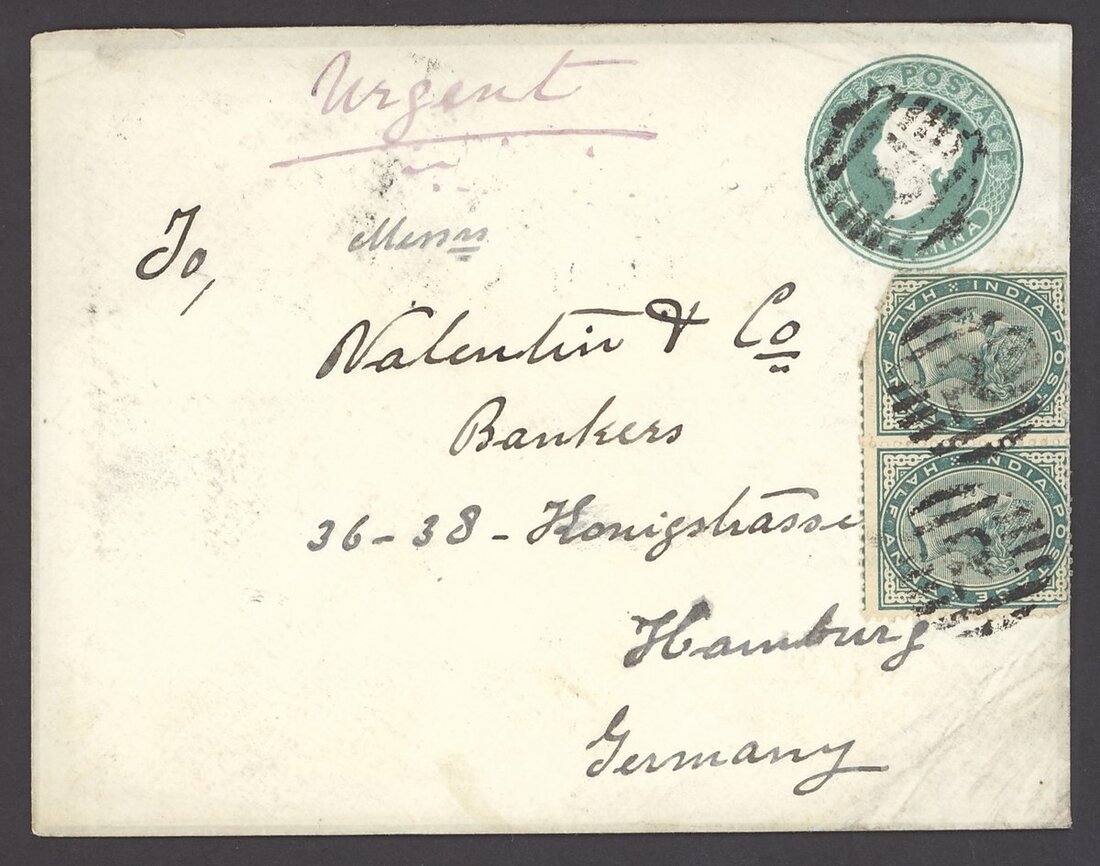 Urgent
POSTAGE
ANNA
To,
Messrs
Valentin & Co
Bankers
36-38-Konigstrasse
Hamburg
Germany
INDIA POSTAGE
HALF ANNA
INDIA POSTAGE
HALF ANNA